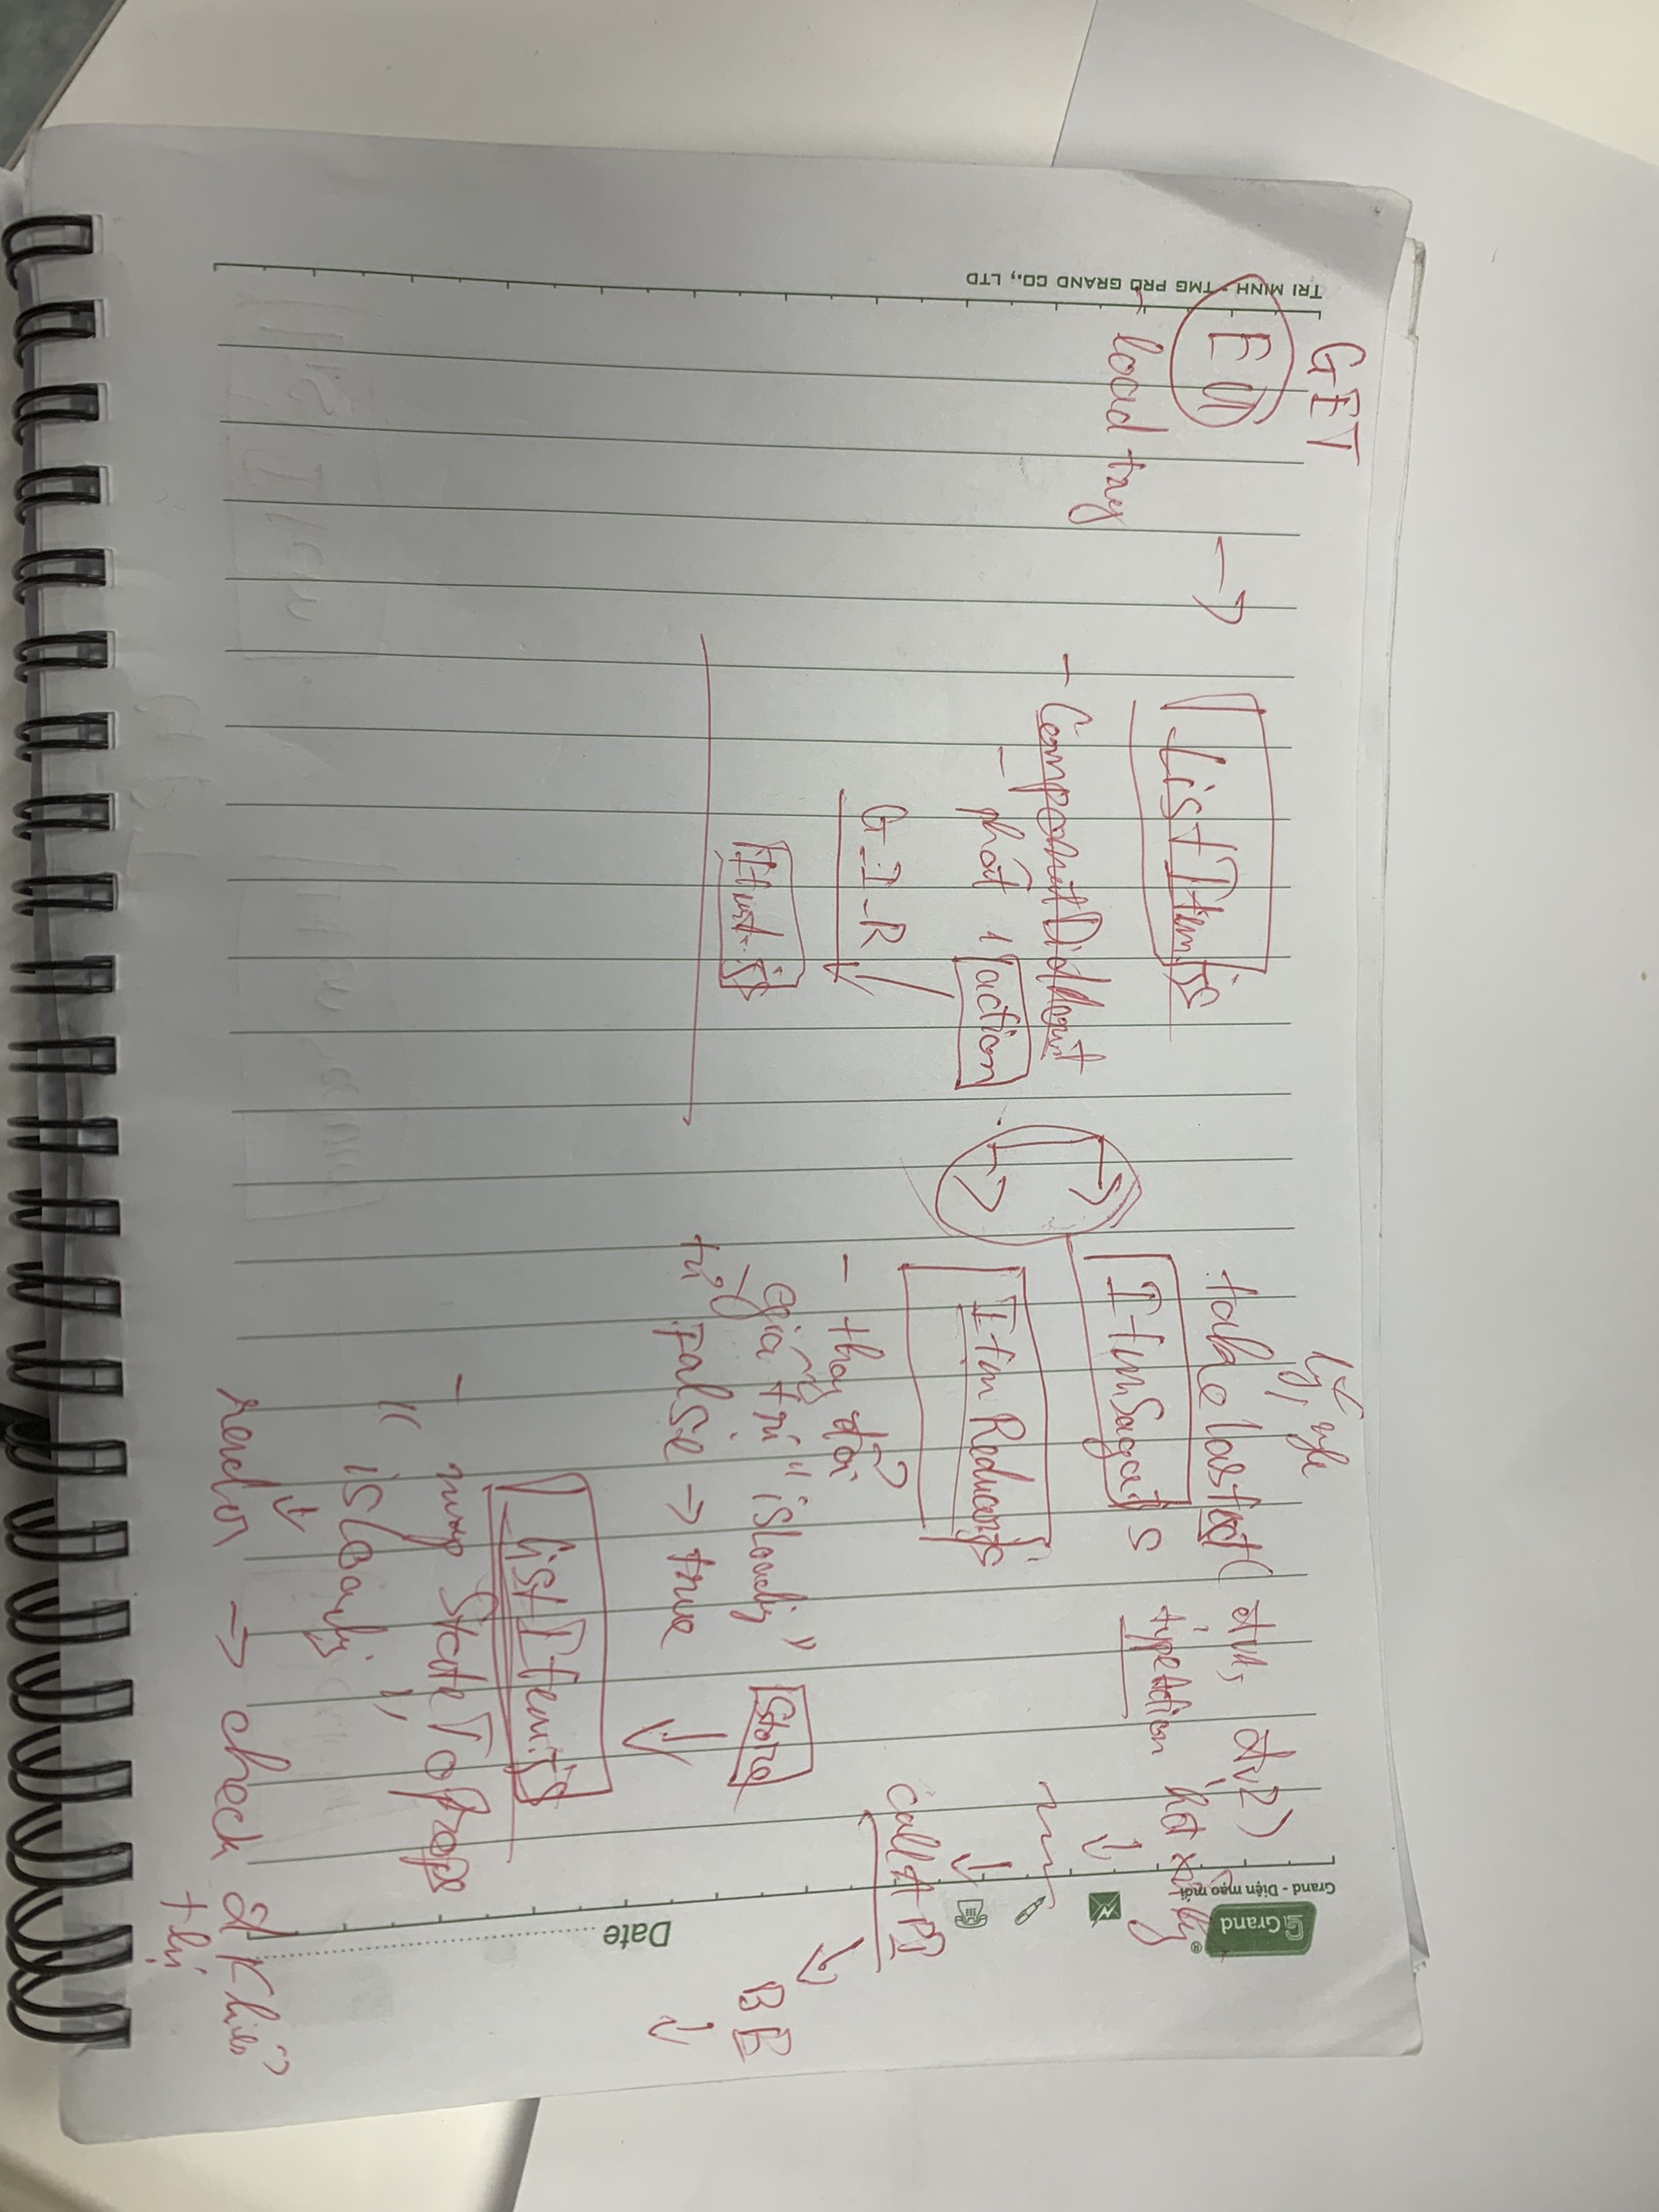 GET
EU
load trg
→ ListItem.js
- ComponentDidMount
- phát 1 action
G_I_R
takelastest( đtv1, đtv2)
typeAction
hàt xử lý
ItemSaga.js
ItemReducer.js
call API
BE
- thay đổi
giá trị "isLoading" Store
từ false → true
ListItem.js
- mapStateToProps
"isLoading"
render → check đk hiển
thị
Grand®
Grand - Diện mạo mới
Date
TRI MINH - TMG PRO GRAND CO., LTD